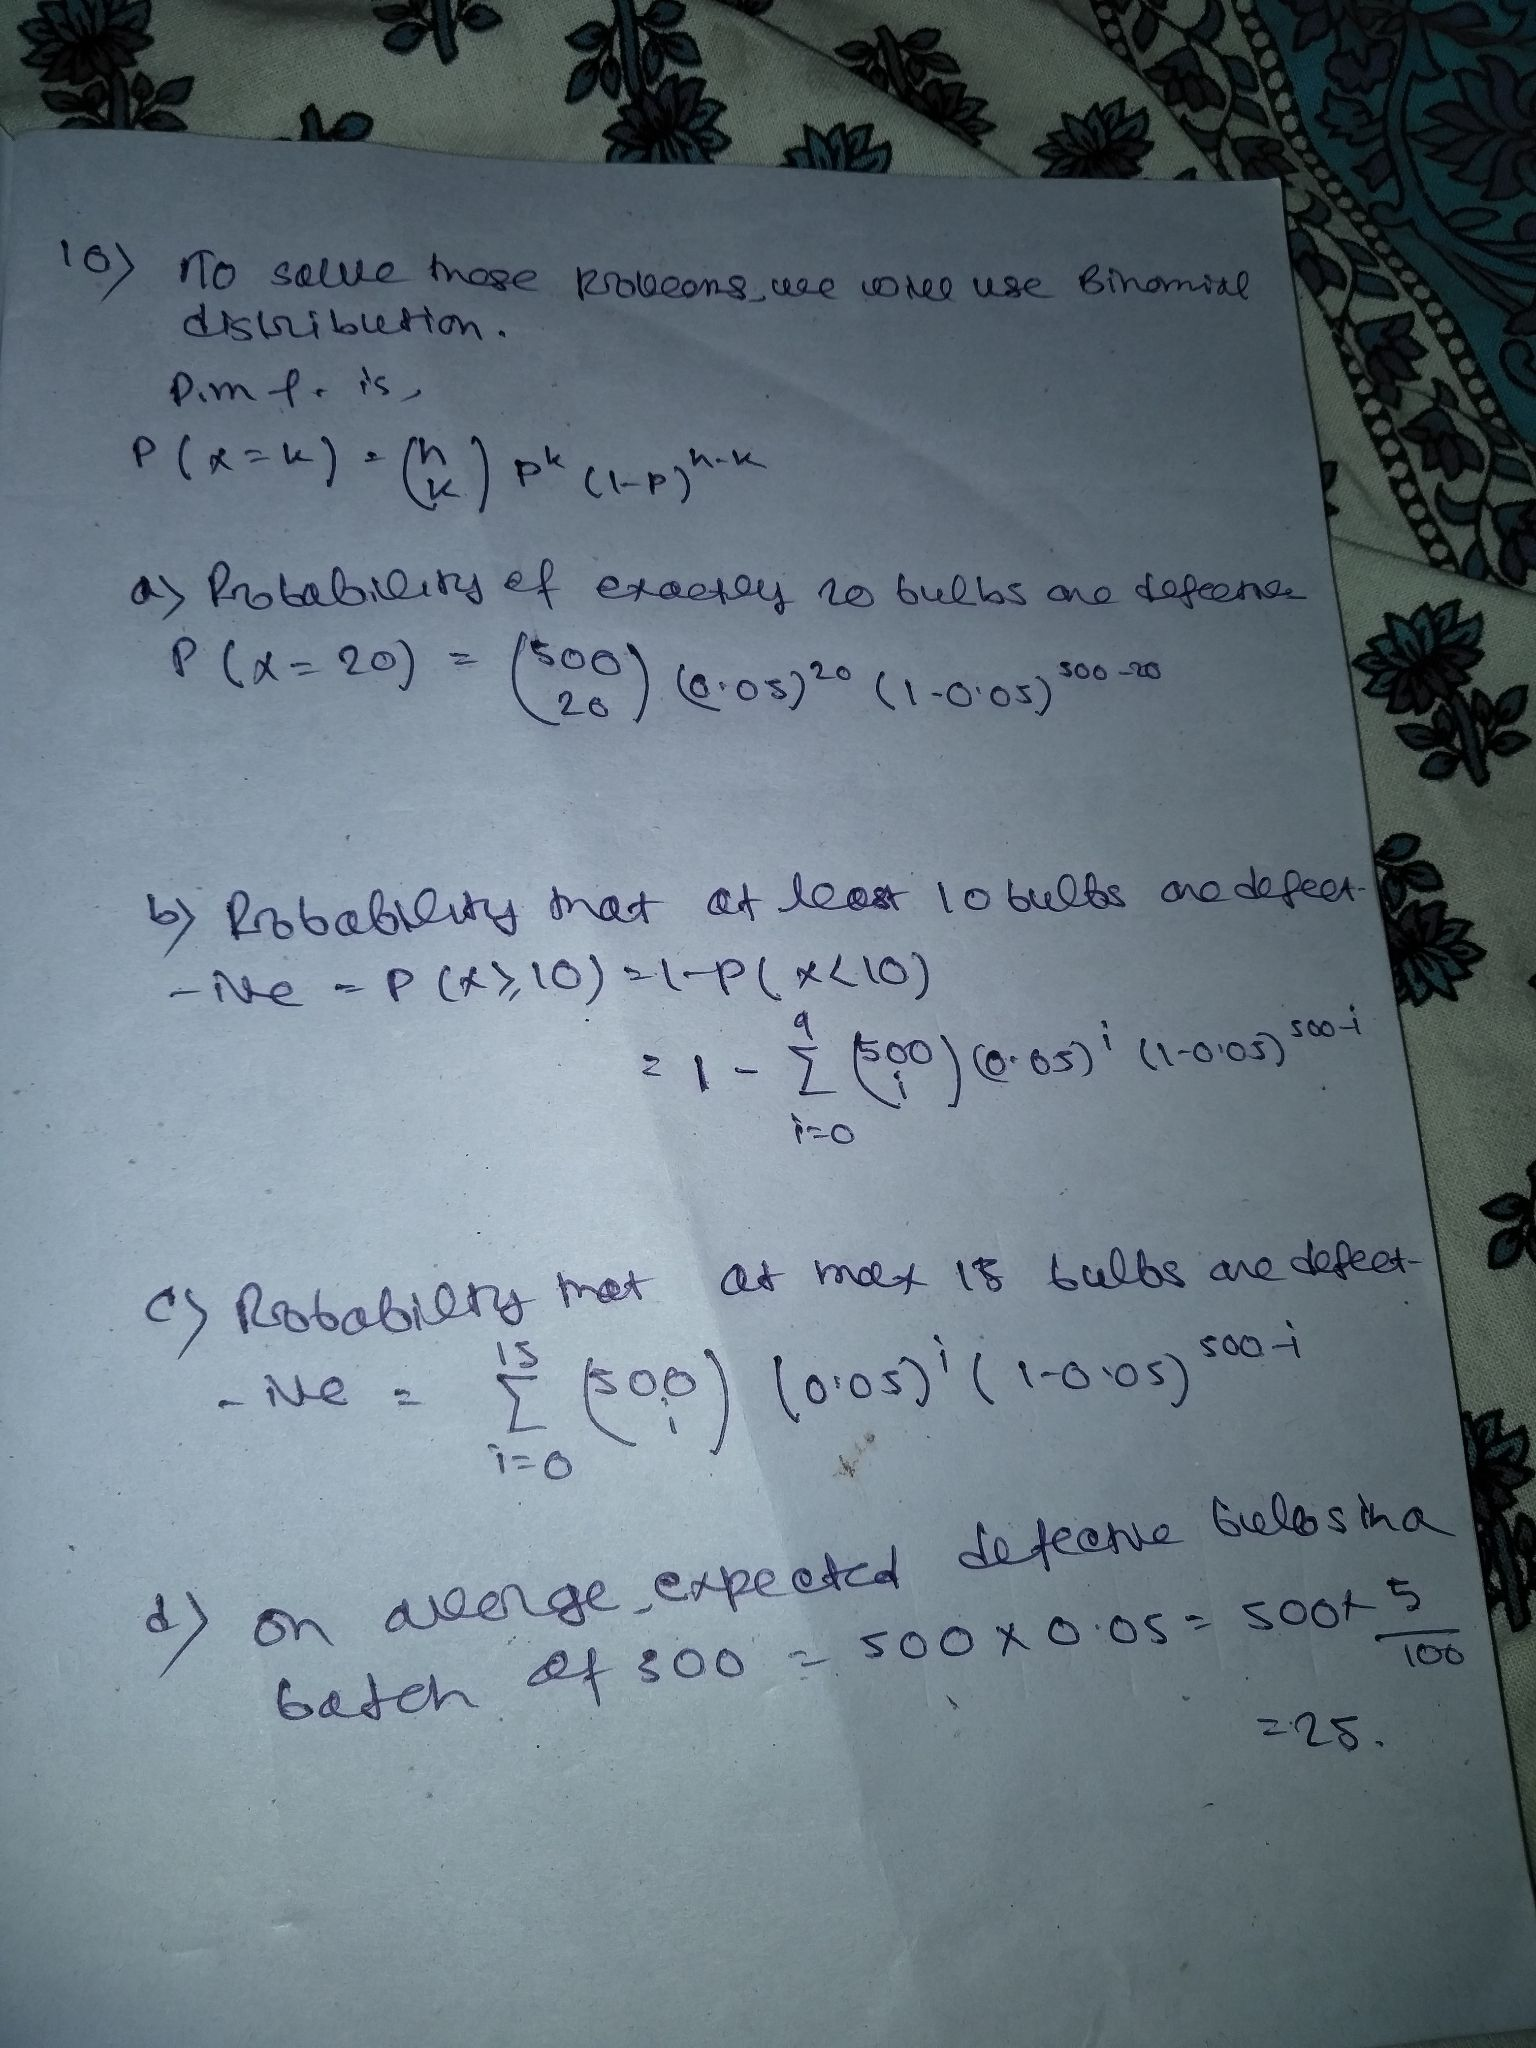 10) To solve these problems, we will use Binomial
distribution.
P.m.f. is,
P(x=k) = (n k) p^k (1-p)^n-k
a) Probability of exactly 20 bulbs are defective
P(x=20) = (500 20) (0.05)^20 (1-0.05)^500-20
b) Probability that at least 10 bulbs are defect-
-ive = P(x≥10) = 1-P(x<10)
= 1 - Σ i=0 9 (500 i) (0.05)^i (1-0.05)^500-i
c) Probability that at max 15 bulbs are defect-
-ive = Σ i=0 15 (500 i) (0.05)^i (1-0.05)^500-i
d) on average, expected defective bulbs in a
batch of 500 = 500 x 0.05 = 500 x 5/100
= 25.